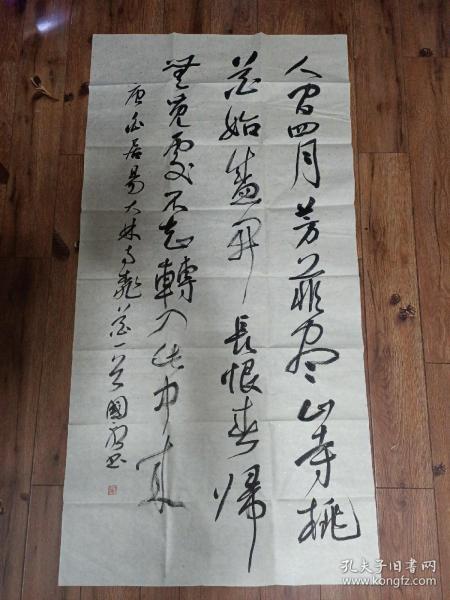 人间四月芳菲尽山寺桃
花始盛开长恨春归
無觅處不知轉入此中来
唐白居易大林寺桃花一首國书
孔夫子旧书网
www.kongfz.com